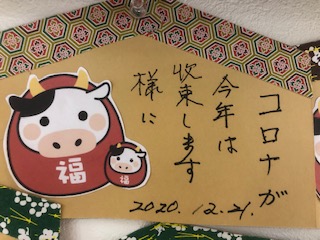 コロナが
今年は
収束します
様に
2020.12.21.
福
福